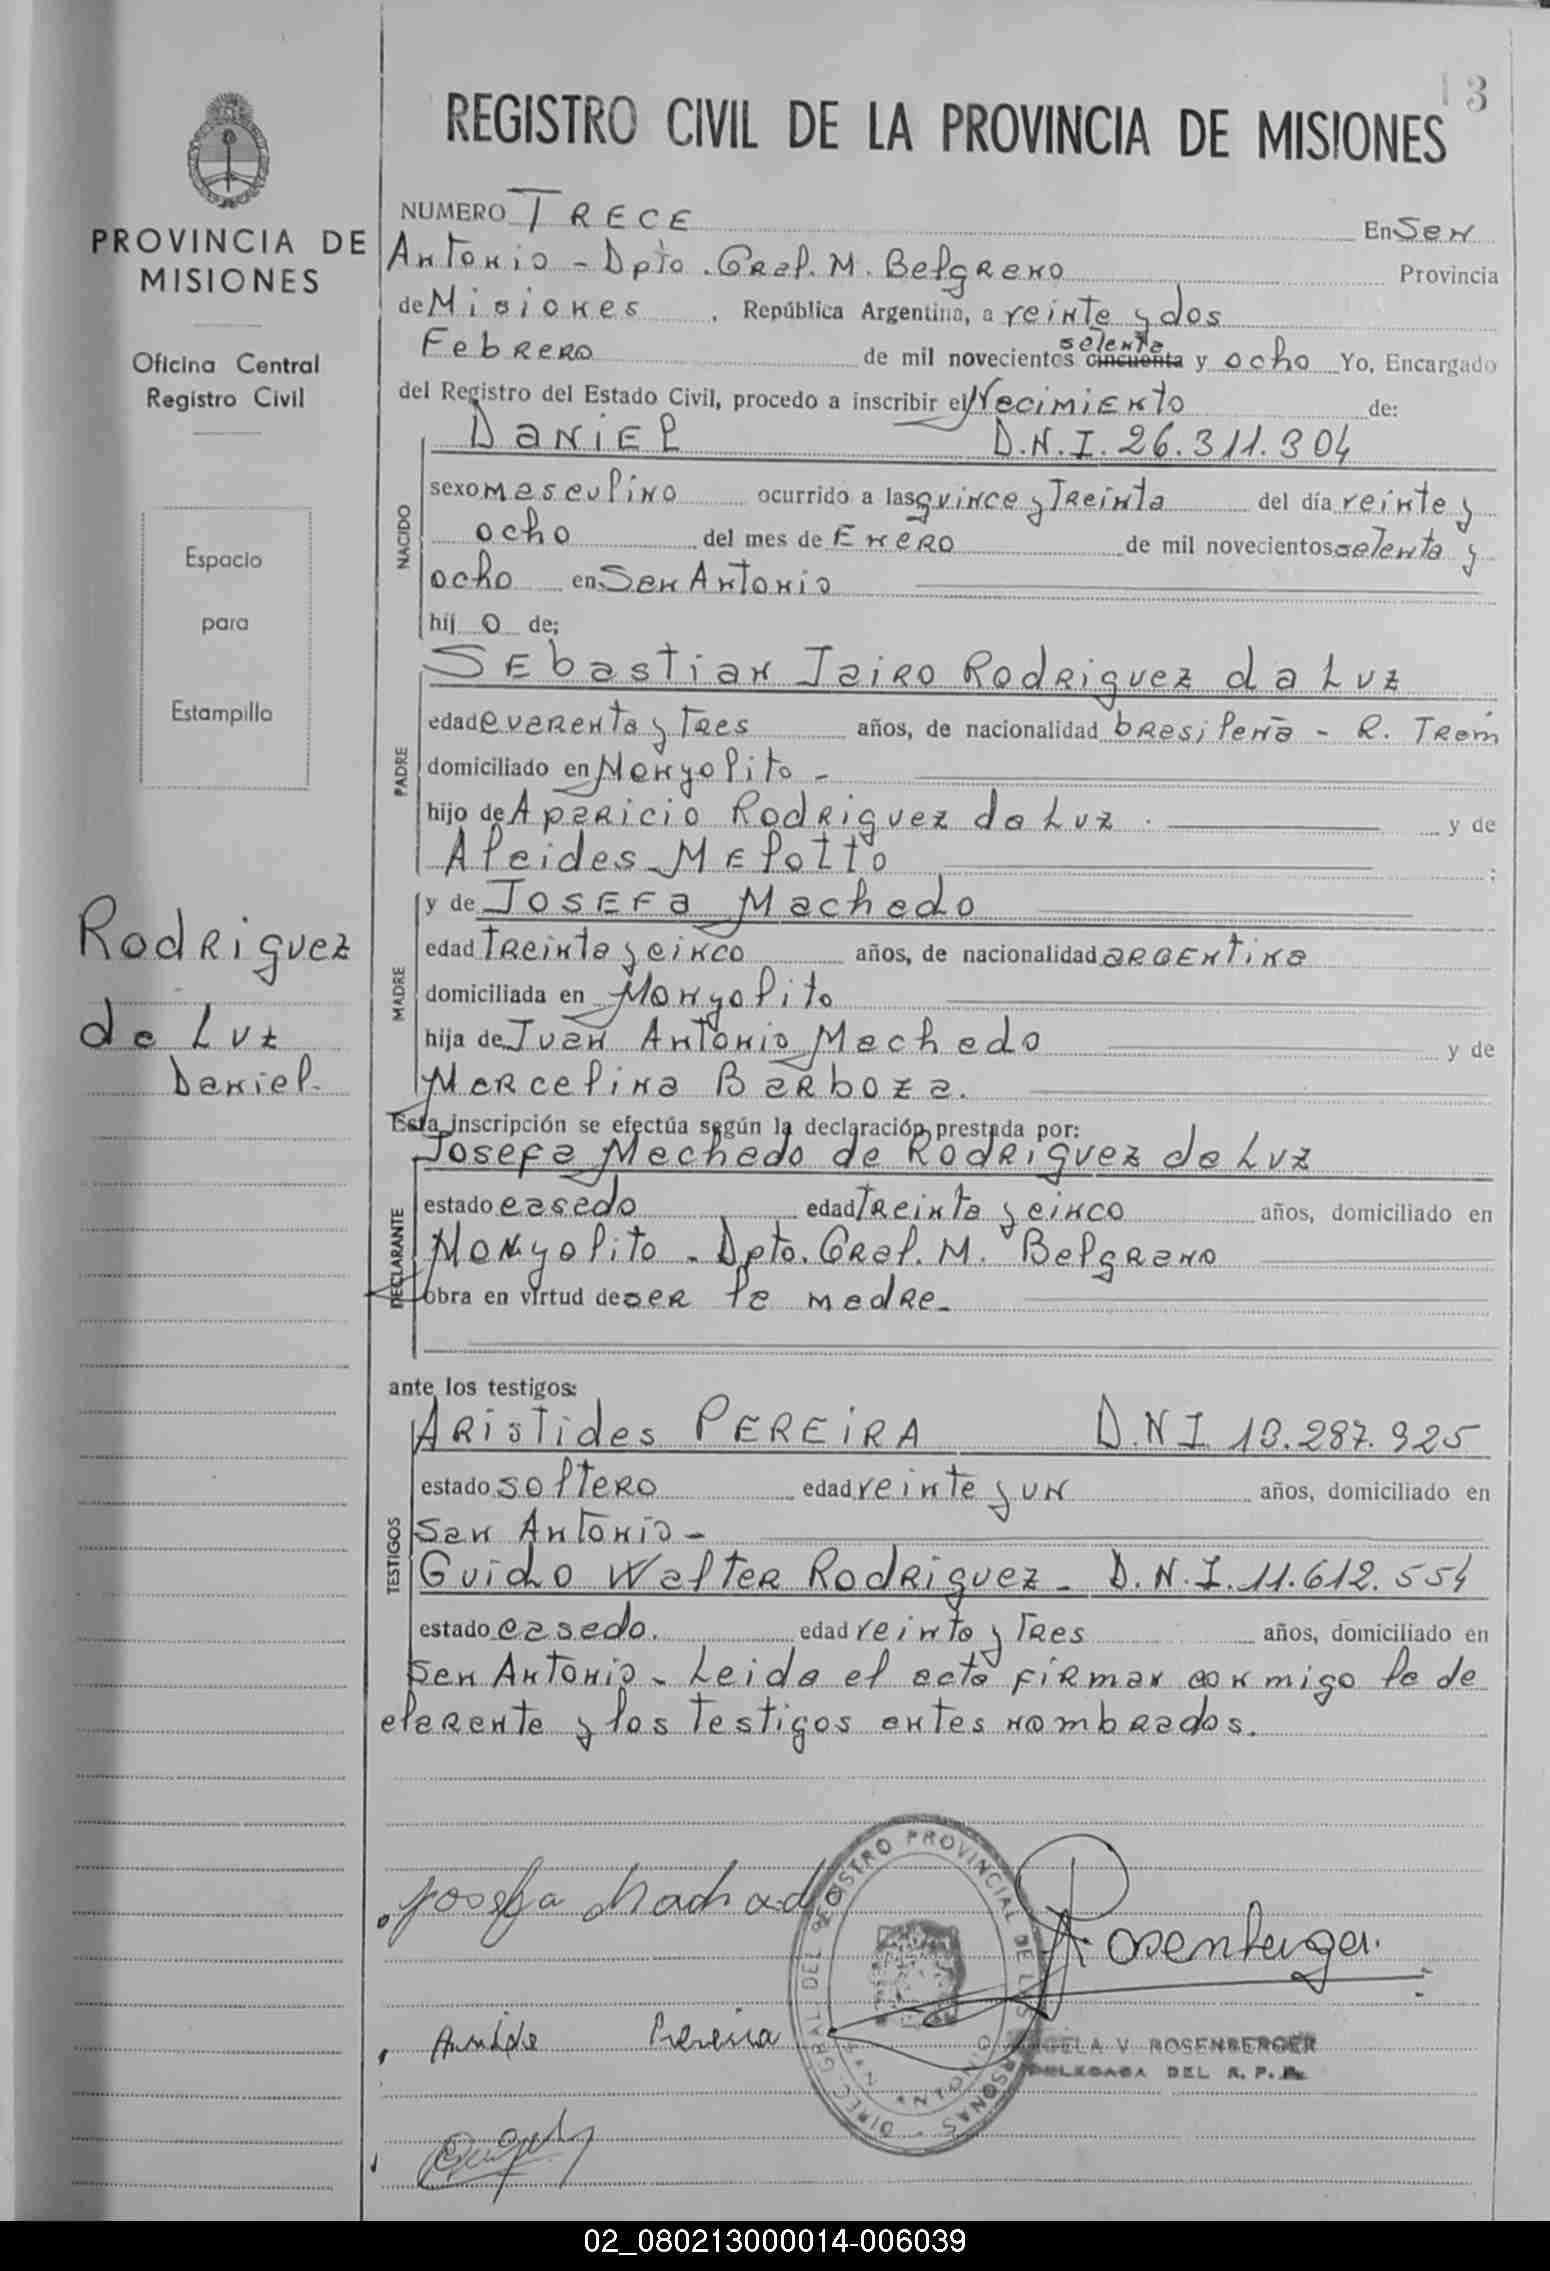 13
REGISTRO CIVIL DE LA PROVINCIA DE MISIONES
PROVINCIA DE
MISIONES
Oficina Central
Registro Civil
Espacio
para
Estampilla
Rodriguez
da Luz
Daniel.
NUMERO TRECE En San
Antonio - Dpto. Gral. M. Belgrano Provincia
de Misiones, República Argentina, a veinte y dos
setenta
Febrero de mil novecientos cincuenta y ocho Yo, Encargado
del Registro del Estado Civil, procedo a inscribir el Nacimiento de:
DANIEL D.N.I. 26.311.304
NACIDO
sexo masculino ocurrido a las quince y Treinta del día veinte y
ocho del mes de Enero de mil novecientos setenta y
ocho en San Antonio
hij o de;
Sebastian Jairo Rodriguez da Luz
PADRE
edad cuarenta y Tres años, de nacionalidad brasileña - R. Trám
domiciliado en Monyolito -
hijo de Aparicio Rodriguez da Luz. y de
Alcides Melotto ;
MADRE
y de Josefa Machado
edad Treinta y cinco años, de nacionalidad argentina
domiciliada en Monyolito
hija de Juan Antonio Machado y de
Marcelina Barboza.
Esta inscripción se efectúa según la declaración prestada por:
Josefa Machado de Rodriguez da Luz
DECLARANTE
estado casado edad Treinta y cinco años, domiciliado en
Monyolito - Dpto. Gral. M. Belgrano
obra en virtud de ser la madre -
ante los testigos:
TESTIGOS
Aristides PEREIRA D.N.I. 13.287.925
estado soltero edad veinte y un años, domiciliado en
San Antonio -
Guido Walter Rodriguez - D.N.I. 11.612.554
estado casado. edad veinte y Tres años, domiciliado en
San Antonio - Leida el acta firman conmigo la de
clarante y los testigos antes nombrados.
Josefa Machado
Rosenberger.
Pereira
DIREC. GRAL DEL REGISTRO PROVINCIAL DE LAS PERSONAS
SAN ANTONIO
ANGELA V. ROSENBERGER
DELEGADA DEL R. P. P.
02_080213000014-006039